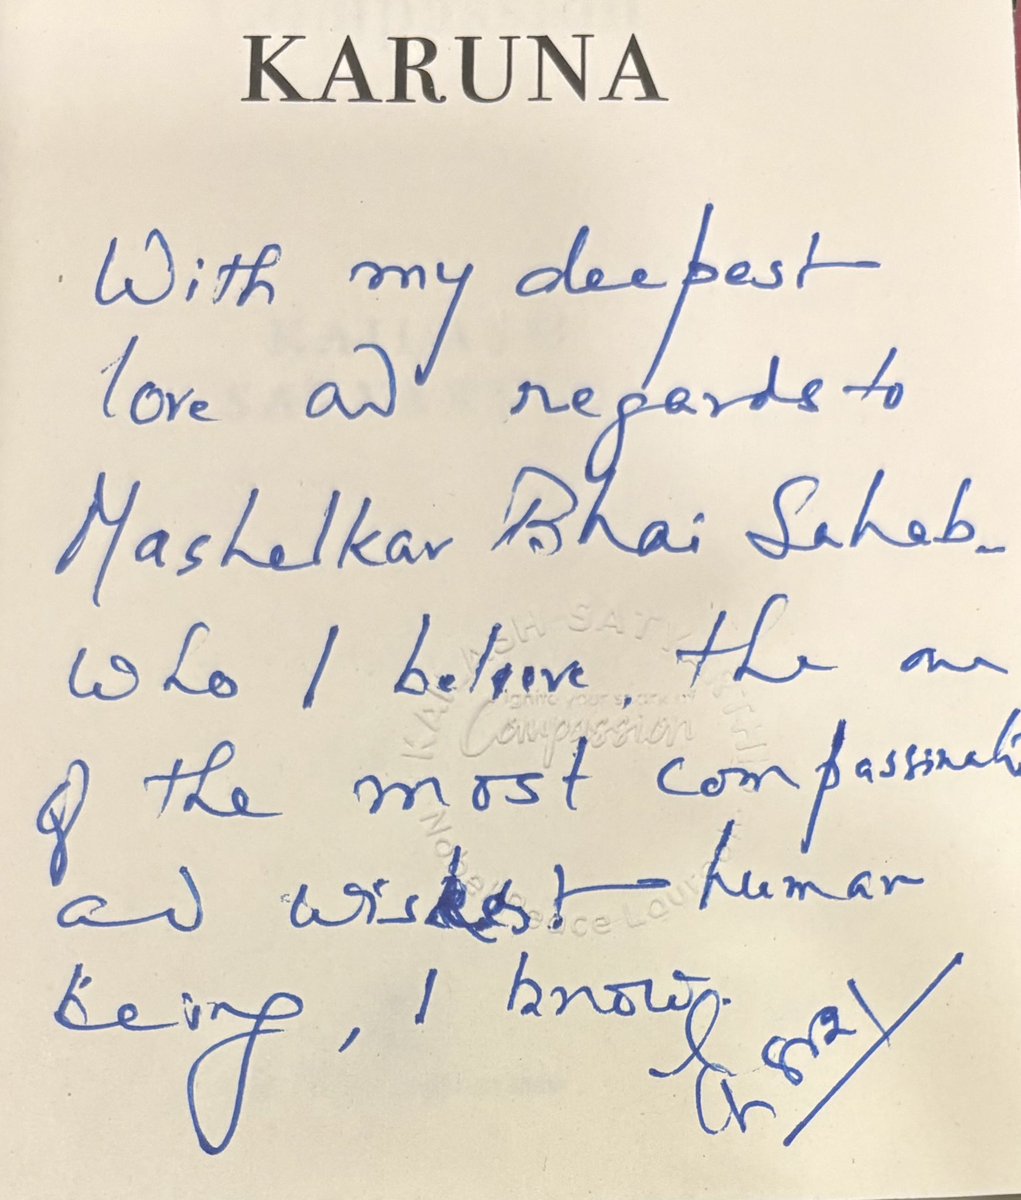 KARUNA
With my deepest
love and regards to
Mashelkar Bhai Saheb.
who I believe, the one
of the most compassinate
and wisest human
being, I know.
KAILASH SATYARTHI
Ignite your spark of
Compassion
Nobel Peace Laureate